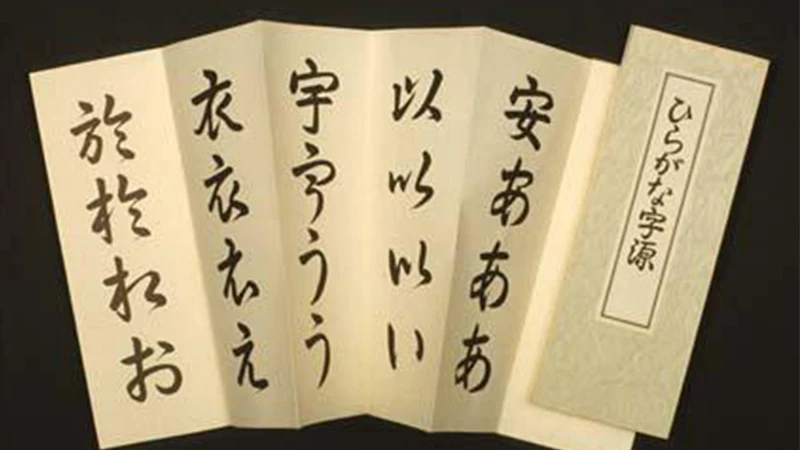 ひらがな字源
安あああ
以以以い
宇宇うう
衣衣衣え
於於於お